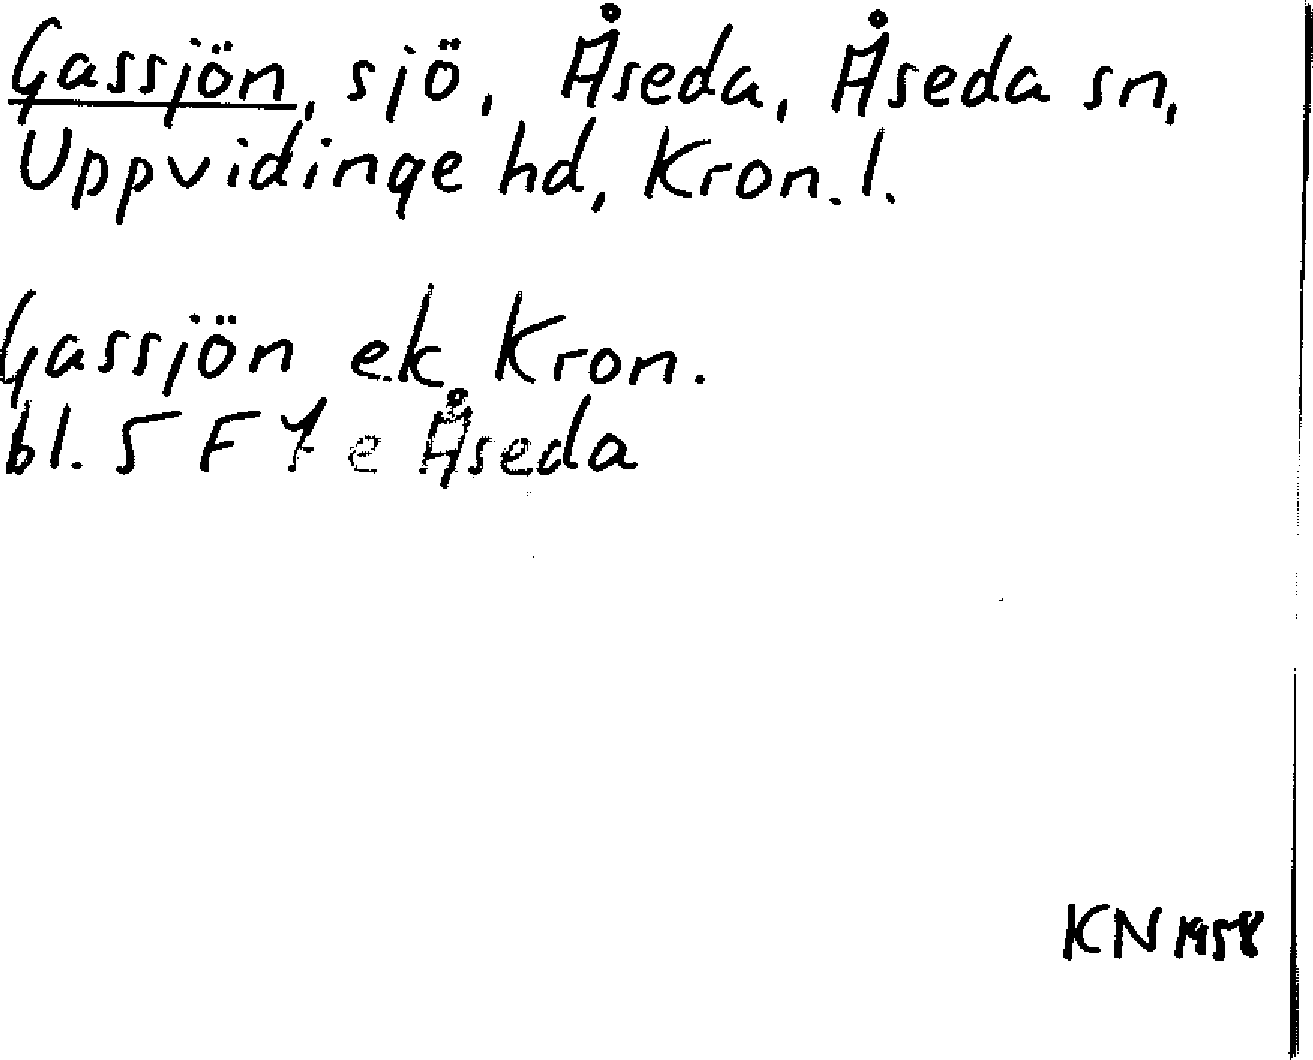 Gassjön, sjö, Åseda, Åseda sn,
Uppvidinge hd, Kron. l.
Gassjön ek. Kron.
bl. 5 F 7 e Åseda
KN 1958